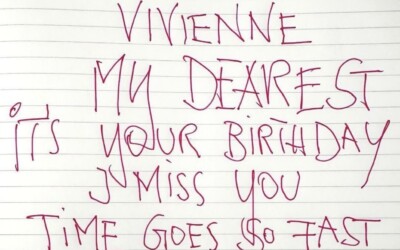 VIVIENNE
MY DEAREST
iT'S YOUR BiRTHDAY
I MISS YOU
TiME GOES SO FAST